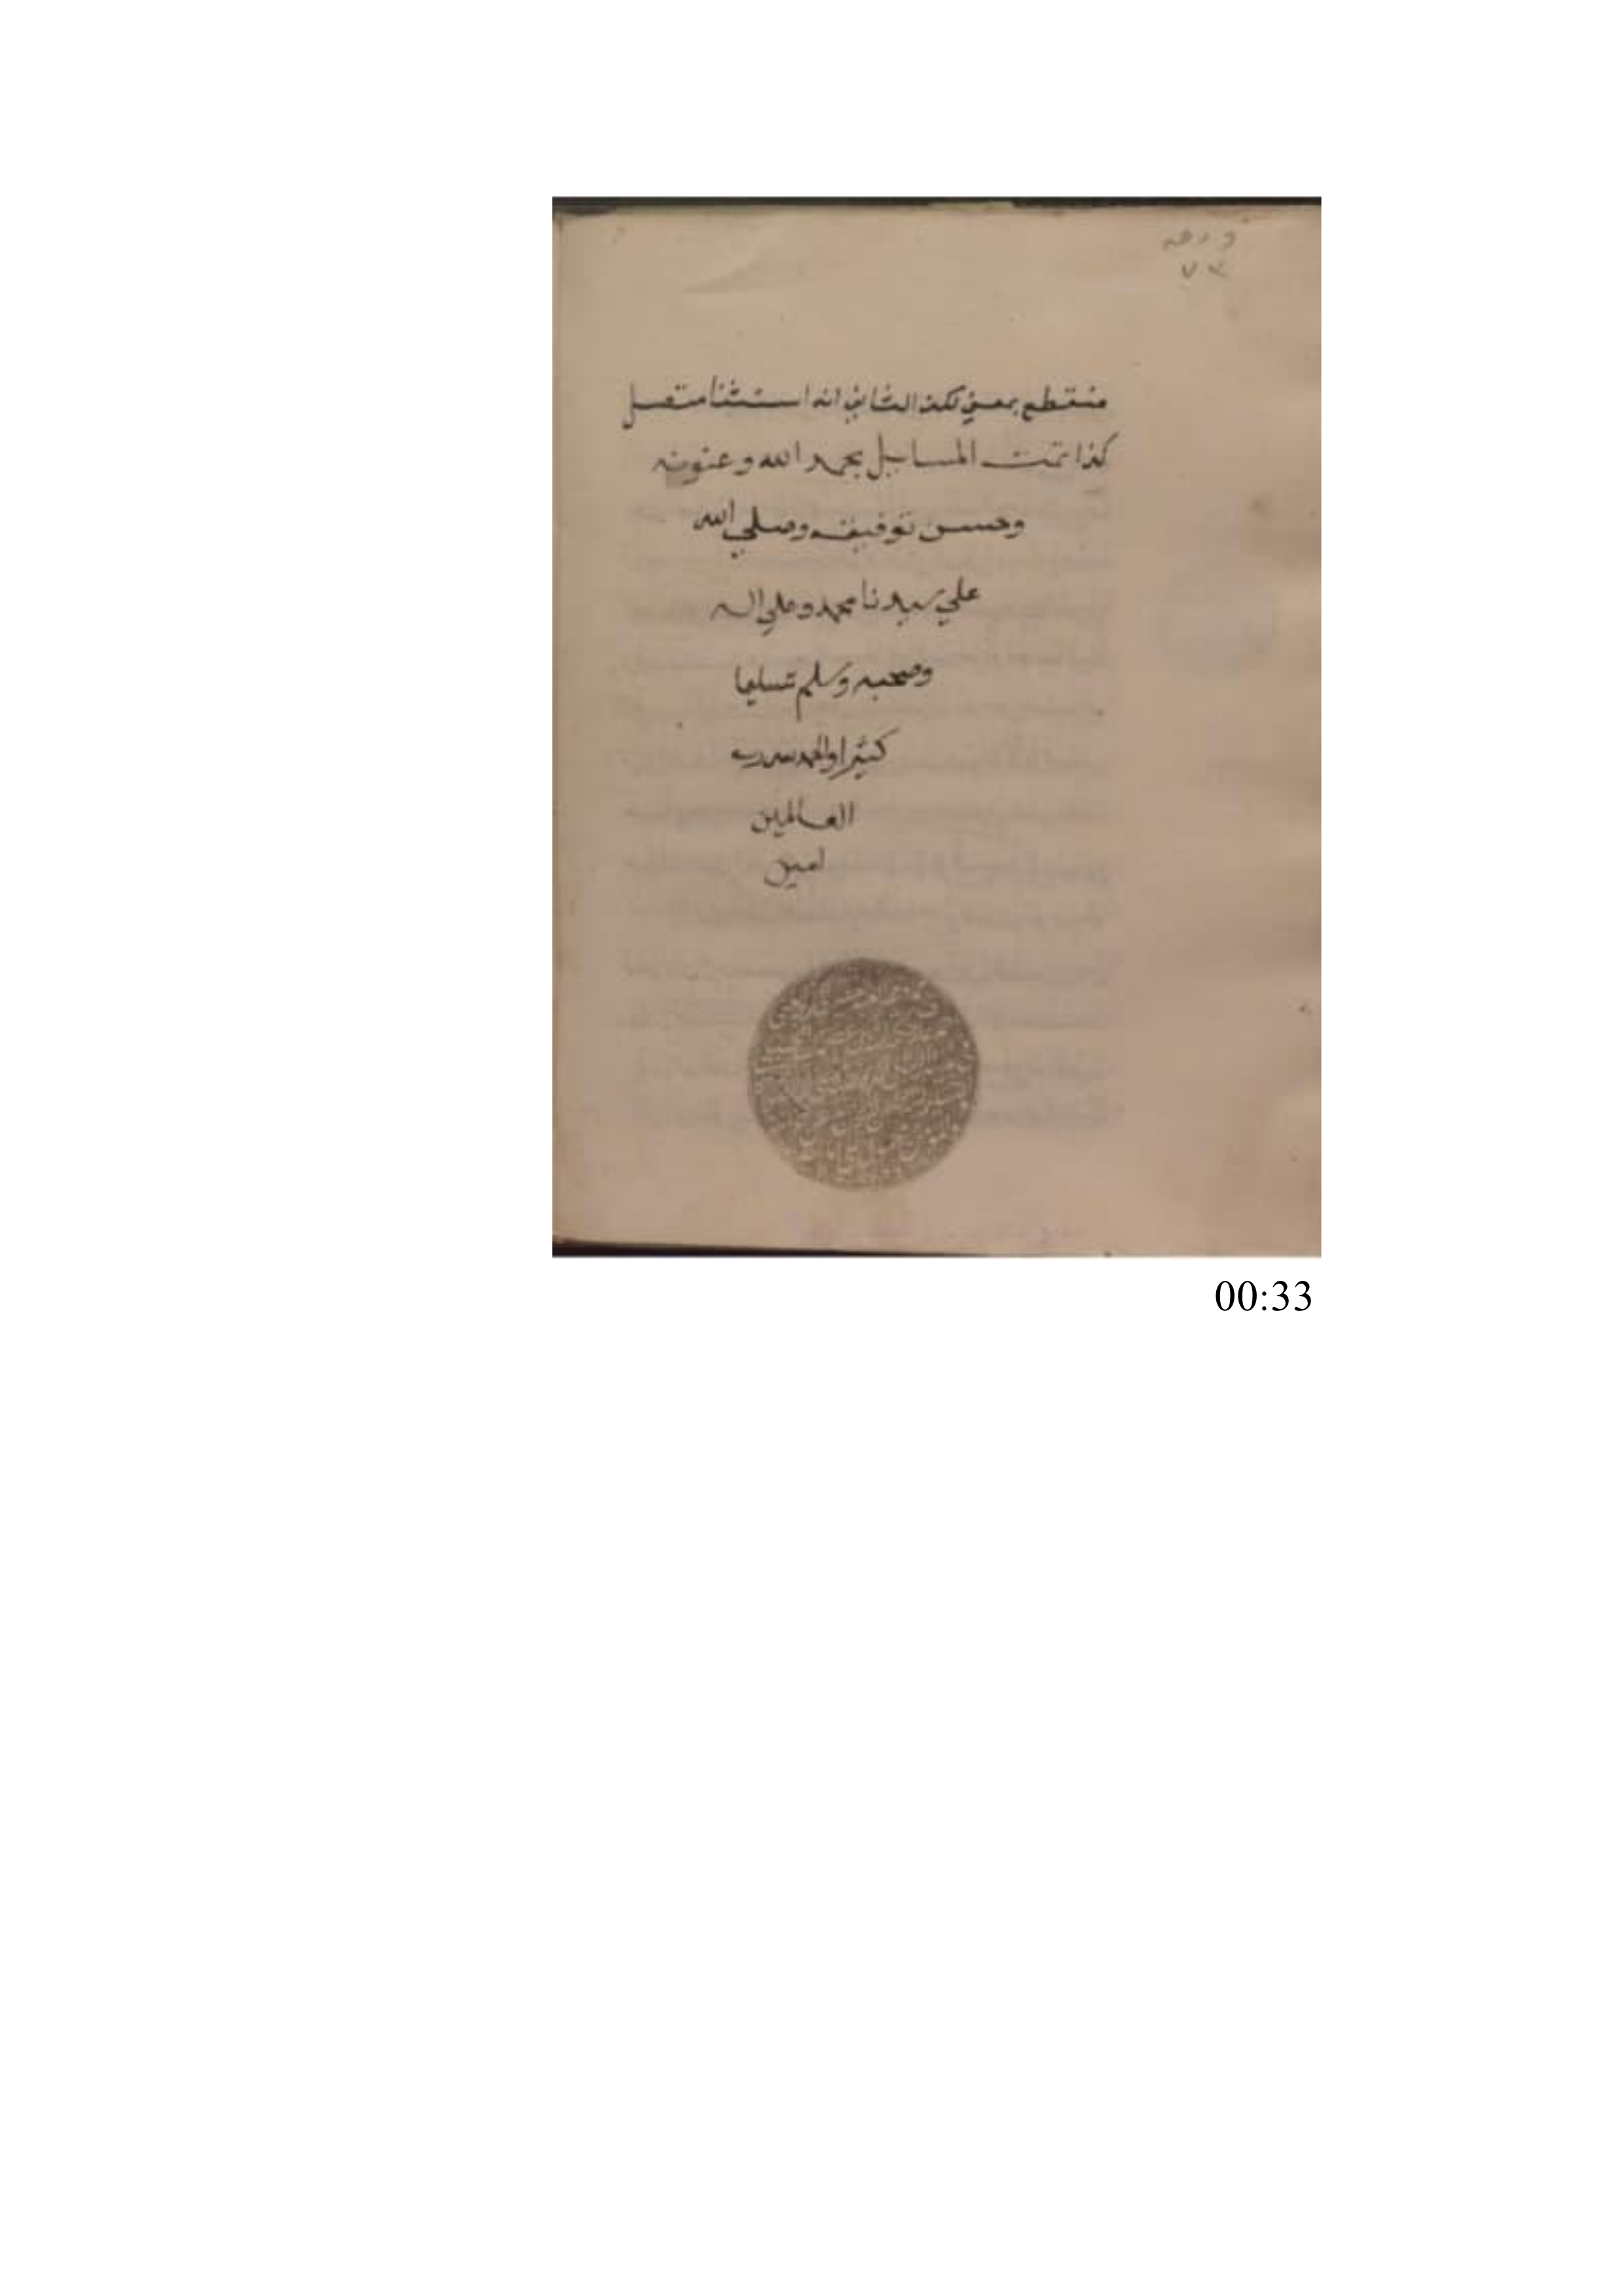 ورقه
٧٤
منقطع بمعني لكن الثاني انه استثنا متصل
كذا تمت المسايل بحمد الله وعونه
وحسن توفيقه وصلي الله
علي سيدنا محمد وعلي اله
وصحبه وسلم تسليما
كثيرا والحمد لله رب
العالمين
امين
00:33